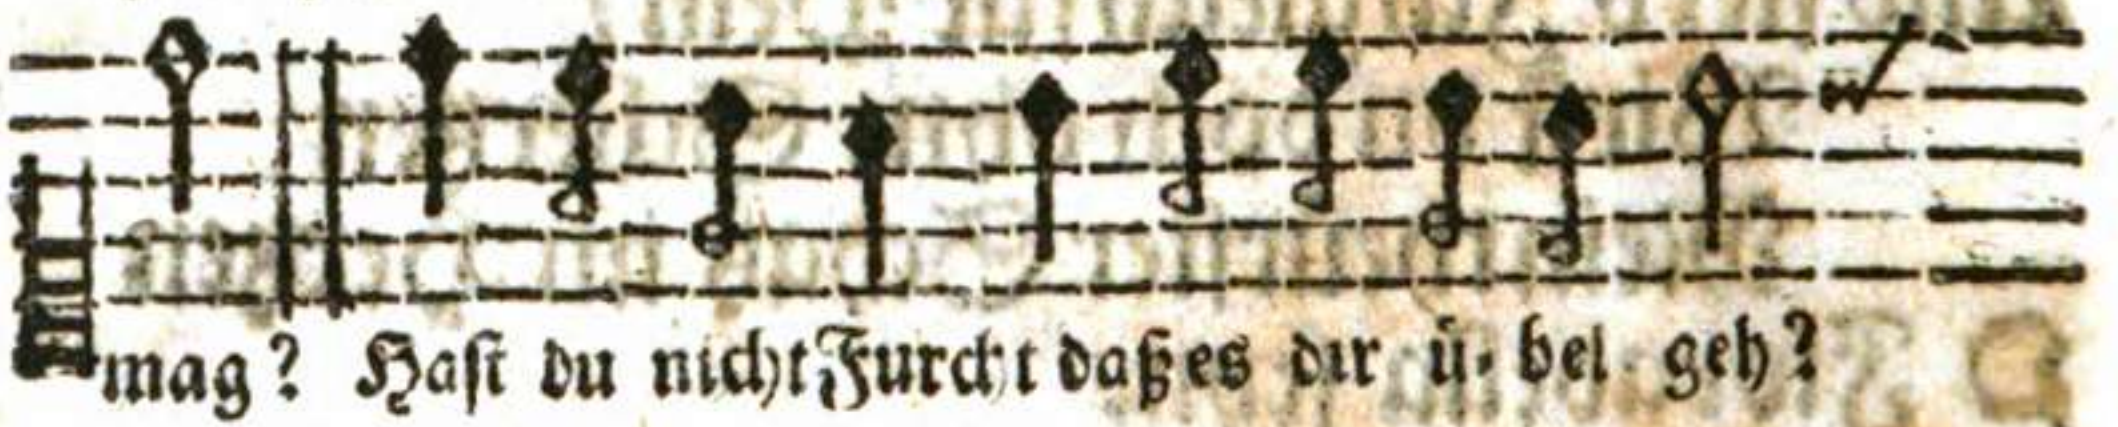 mag? Hast du nicht Furcht daß es dir ü- bel geh?